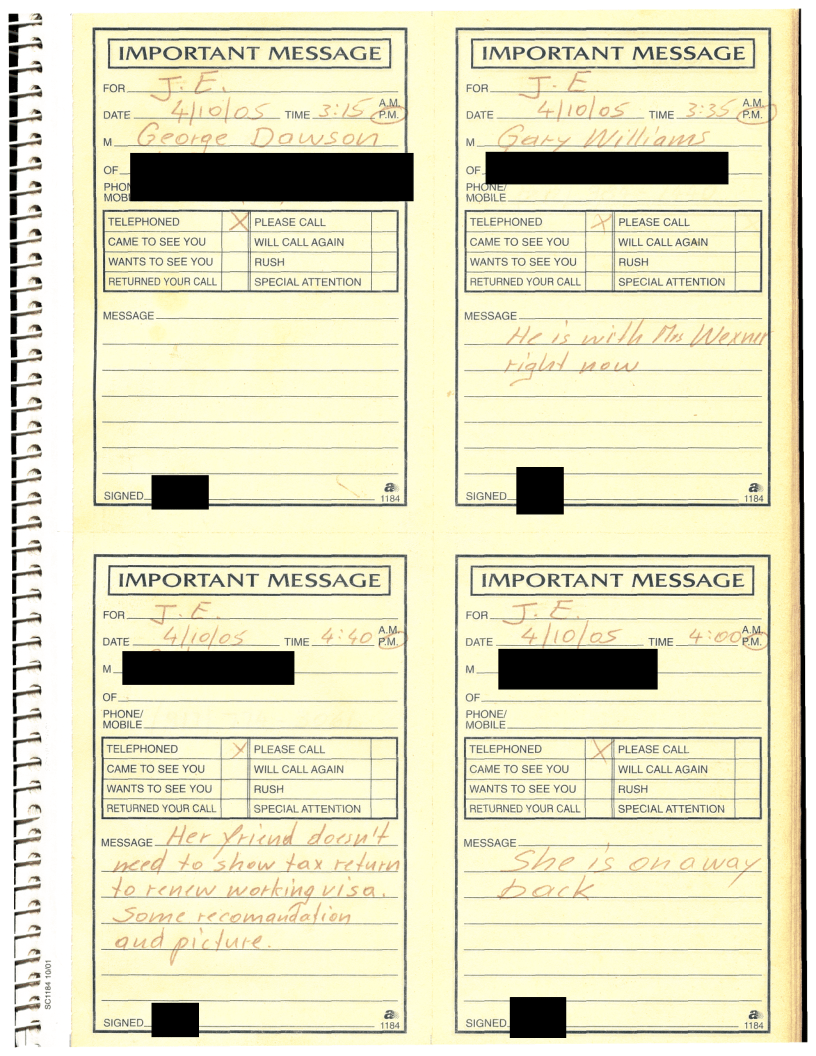 IMPORTANT MESSAGE
FOR J.E.
DATE 4/10/05 TIME 3:15 A.M. P.M.
M George Dawson
OF
PHON
MOBI
TELEPHONED X PLEASE CALL
CAME TO SEE YOU WILL CALL AGAIN
WANTS TO SEE YOU RUSH
RETURNED YOUR CALL SPECIAL ATTENTION
MESSAGE
SIGNED
a
1184
IMPORTANT MESSAGE
FOR J.E
DATE 4/10/05 TIME 3:35 A.M. P.M.
M Gary Williams
OF
PHONE/
MOBILE
TELEPHONED X PLEASE CALL
CAME TO SEE YOU WILL CALL AGAIN
WANTS TO SEE YOU RUSH
RETURNED YOUR CALL SPECIAL ATTENTION
MESSAGE
He is with Mrs Wexner
right now
SIGNED
a
1184
IMPORTANT MESSAGE
FOR J.E.
DATE 4/10/05 TIME 4:40 A.M. P.M.
M
OF
PHONE/
MOBILE
TELEPHONED X PLEASE CALL
CAME TO SEE YOU WILL CALL AGAIN
WANTS TO SEE YOU RUSH
RETURNED YOUR CALL SPECIAL ATTENTION
MESSAGE Her friend doesn't
need to show tax return
to renew working visa.
Some recomandation
and picture.
SIGNED
a
1184
IMPORTANT MESSAGE
FOR J.E.
DATE 4/10/05 TIME 4:00 A.M. P.M.
M
OF
PHONE/
MOBILE
TELEPHONED X PLEASE CALL
CAME TO SEE YOU WILL CALL AGAIN
WANTS TO SEE YOU RUSH
RETURNED YOUR CALL SPECIAL ATTENTION
MESSAGE
She is on away
back
SIGNED
a
1184
SC1184 10/01